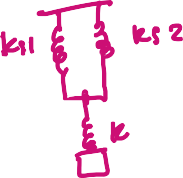 ks1
ks2
k